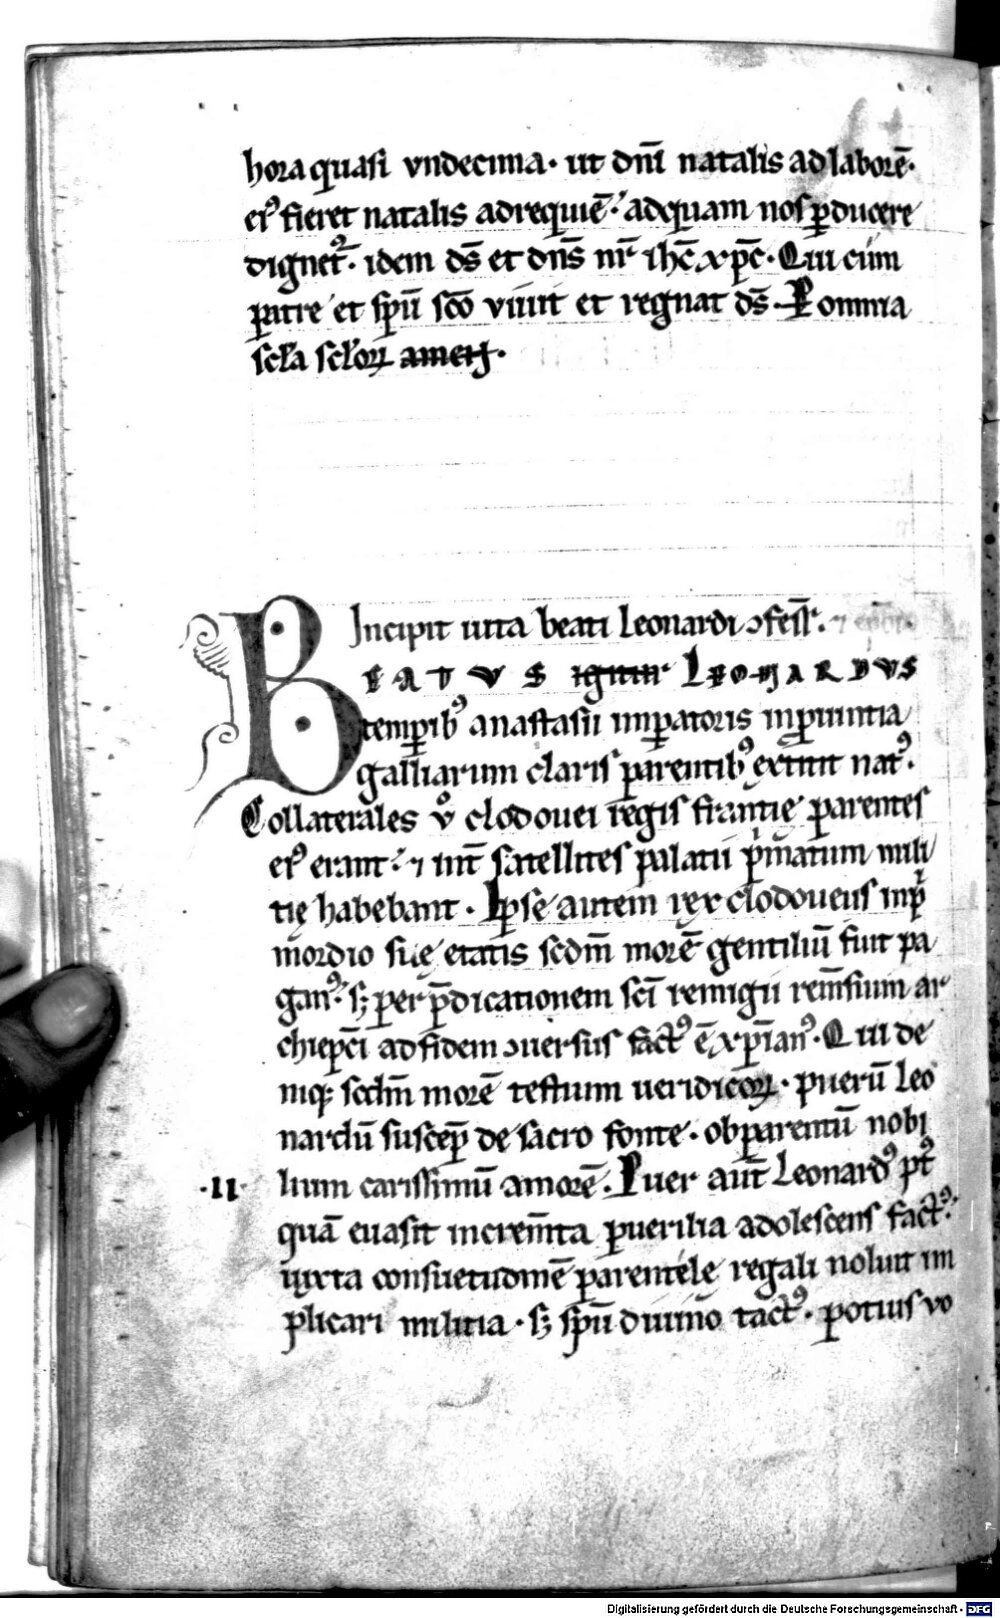 hora quasi vndecima· ut dn̄i natalis ad laborē·
eiꝰ fieret natalis ad requiē· ad quam nos ꝑducere
dignetᷣ· idem ds̄ et dn̄s nr̄ ih̄c xp̄c· Qui cum
patre et sp̄u sc̄o viuit et regnat ds̄· P omnia
scła scłoꝝ amen·
Incipit uita beati Leonardi ↄfess̄·
BEATUS igitur LEONARDVS
temꝑibꝰ anastasii imꝑatoris in ꝓuintia
galliarum claris parentibꝰ extitit natꝰ·
Collaterales v̊ clodouei regis frantię parentes
eiꝰ erant· ⁊ int̄ satellites palatii p̄matum mili
tię habebant· Ipse autem rex clodoueus in pͥ
mordio suę etatis scdm̄ morē gentiliū fuit pa
ganꝰ· sꝫ per p̄dicationem sc̄i remigii rem̄sium ar
chiep̄ci ad fidem ↄuersus factꝰ ē xp̄ianꝰ· Qui de
niqꝫ scdm̄ morē testium ueridicoꝝ· puerū Leo
nardū suscep̄ de sacro fonte· ob parentū nobi
·II· lium carissimū amorē· Puer aut̄ Leonardꝰ pt̄ꝰ
quā euasit increm̄ta puerilia adolescens factꝰ·
iuxta consuetudinē parentele regali noluit im
plicari militia· sꝫ sp̄u diuino tactꝰ· potius vo
Digitalisierung gefördert durch die Deutsche Forschungsgemeinschaft - DFG